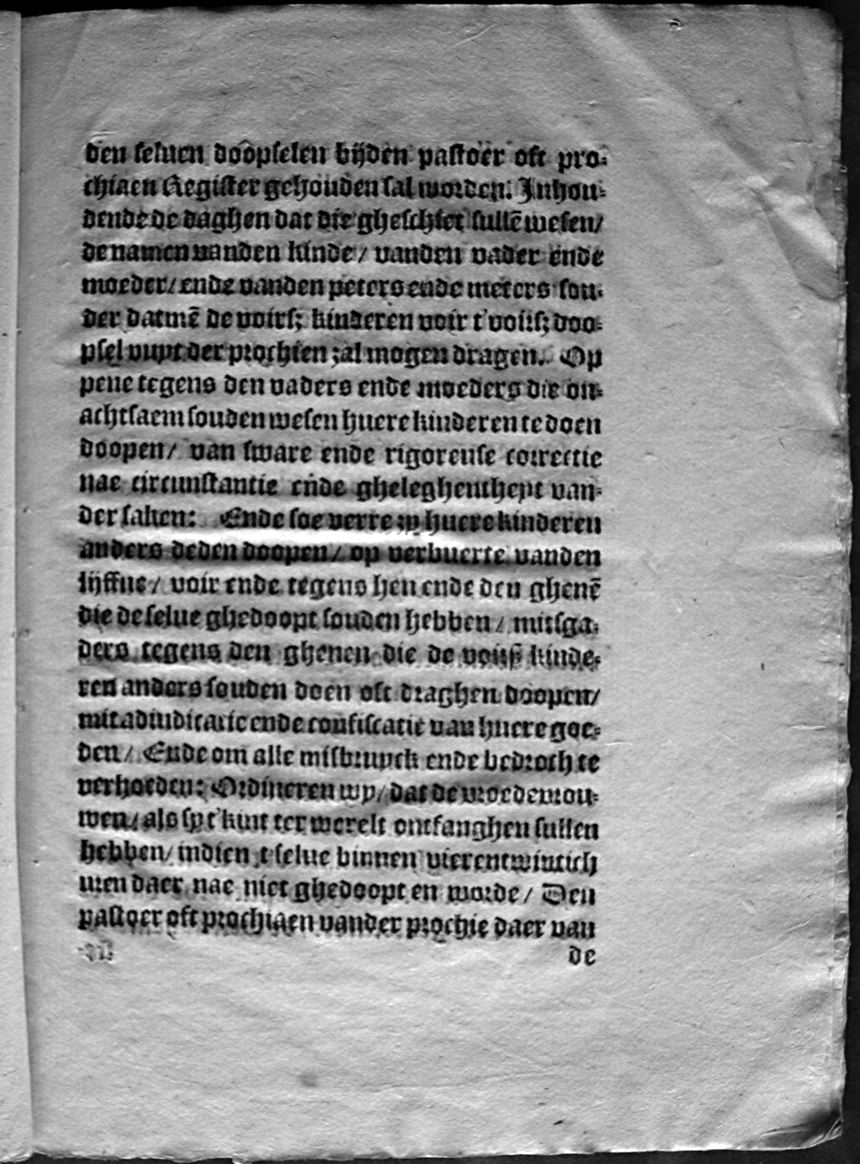 den seluen doopselen bijden pastoer oft pro⸗
chiaen Register gehouden sal worden: Inhou⸗
dende de daghen dat die gheschiet sullē wesen/
de namen vanden kinde/ vanden vader ende
moeder/ ende vanden peters ende meters son⸗
der datmē de voirsz kinderen voir t'voirsz doo⸗
psel vuyt der prochien zal mogen dragen. Op
pene tegens den vaders ende moeders die on⸗
achtsaem souden wesen huere kinderen te doen
doopen/ van sware ende rigoreuse correctie
nae circunstantie ende gheleghentheyt van⸗
der saken: Ende soe verre zy huere kinderen
anders deden doopen/ op verbuerte vanden
lijffue/ voir ende tegens hen ende den ghenē
die de selue ghedoopt souden hebben/ mitsga⸗
ders tegens den ghenen die de voirsz kinde⸗
ren anders souden doen oft draghen doopen/
mit adiudicatie ende confiscatie van huere goe⸗
den/ Ende om alle misbruyck ende bedroch te
verhoeden: Ordineren wy/ dat de vroedevrou⸗
wen/ als sy t'kint ter werelt ontfanghen sullen
hebben/ indien t'selue binnen vierentwintich
uren daer nae niet ghedoopt en worde/ Den
pastoer oft prochiaen vander prochie daer van
de